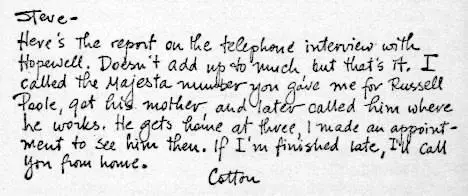 Steve -
Here's the report on the telephone interview with
Hopewell. Doesn't add up to much, but that's it. I
called the Majesta number you gave me for Russell
Poole, got his mother, and later called him where
he works. He gets home at three, I made an appoint-
ment to see him then. If I'm finished late, I'll call
you from home.
Cotton